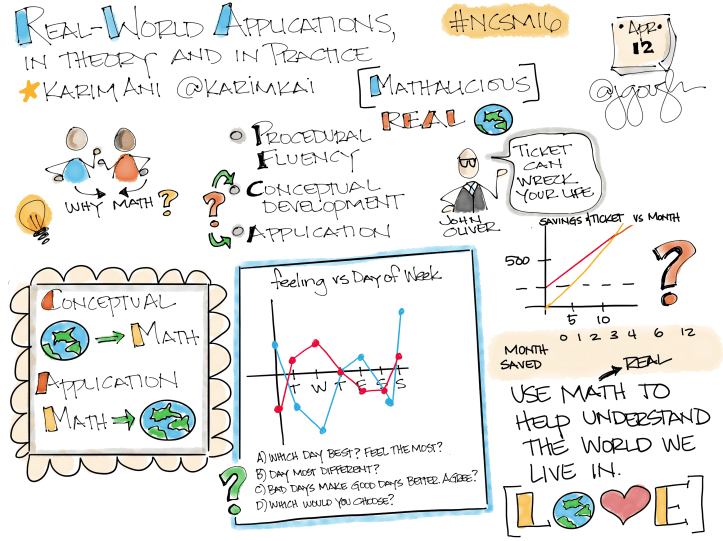 REAL-WORLD APPLICATIONS,
IN THEORY AND IN PRACTICE
KARIM ANI @KARIMKAI
#NCSM16
APR
12
@jgough
[MATHALICIOUS]
REAL
WHY MATH?
PROCEDURAL
FLUENCY
CONCEPTUAL
DEVELOPMENT
APPLICATION
?
JOHN
OLIVER
TICKET
CAN
WRECK
YOUR LIFE
SAVINGS & TICKET VS MONTH
500
5 10
?
0 1 2 3 4 6 12
MONTH
SAVED
REAL
CONCEPTUAL
MATH
APPLICATION
MATH
feeling vs Day of Week
T W T F S S
A) WHICH DAY BEST? FEEL THE MOST?
B) DAY MOST DIFFERENT?
C) BAD DAYS MAKE GOOD DAYS BETTER. AGREE?
D) WHICH WOULD YOU CHOOSE?
?
USE MATH TO
HELP UNDERSTAND
THE WORLD WE
LIVE IN.
[L E]